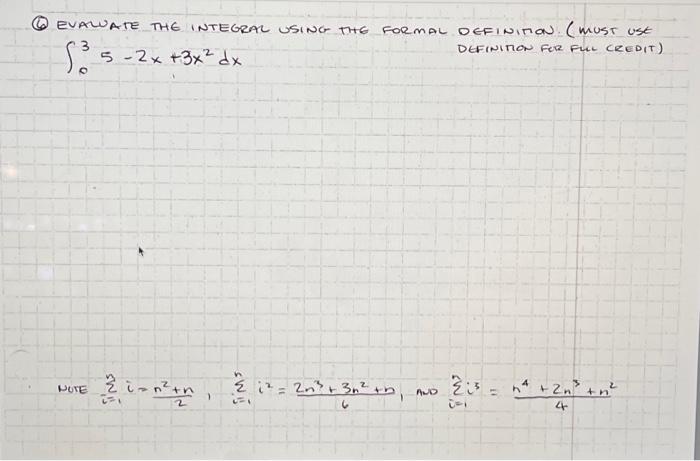 ⑥ EVALUATE THE INTEGRAL USING THE FORMAL DEFINITION. (MUST USE
DEFINITION FOR FULL CREDIT)
∫₀³ 5 - 2x + 3x² dx
NOTE Σᵢ₌₁ⁿ i = (n² + n)/2, Σᵢ₌₁ⁿ i² = (2n³ + 3n² + n)/6, AND Σᵢ₌₁ⁿ i³ = (n⁴ + 2n³ + n²)/4